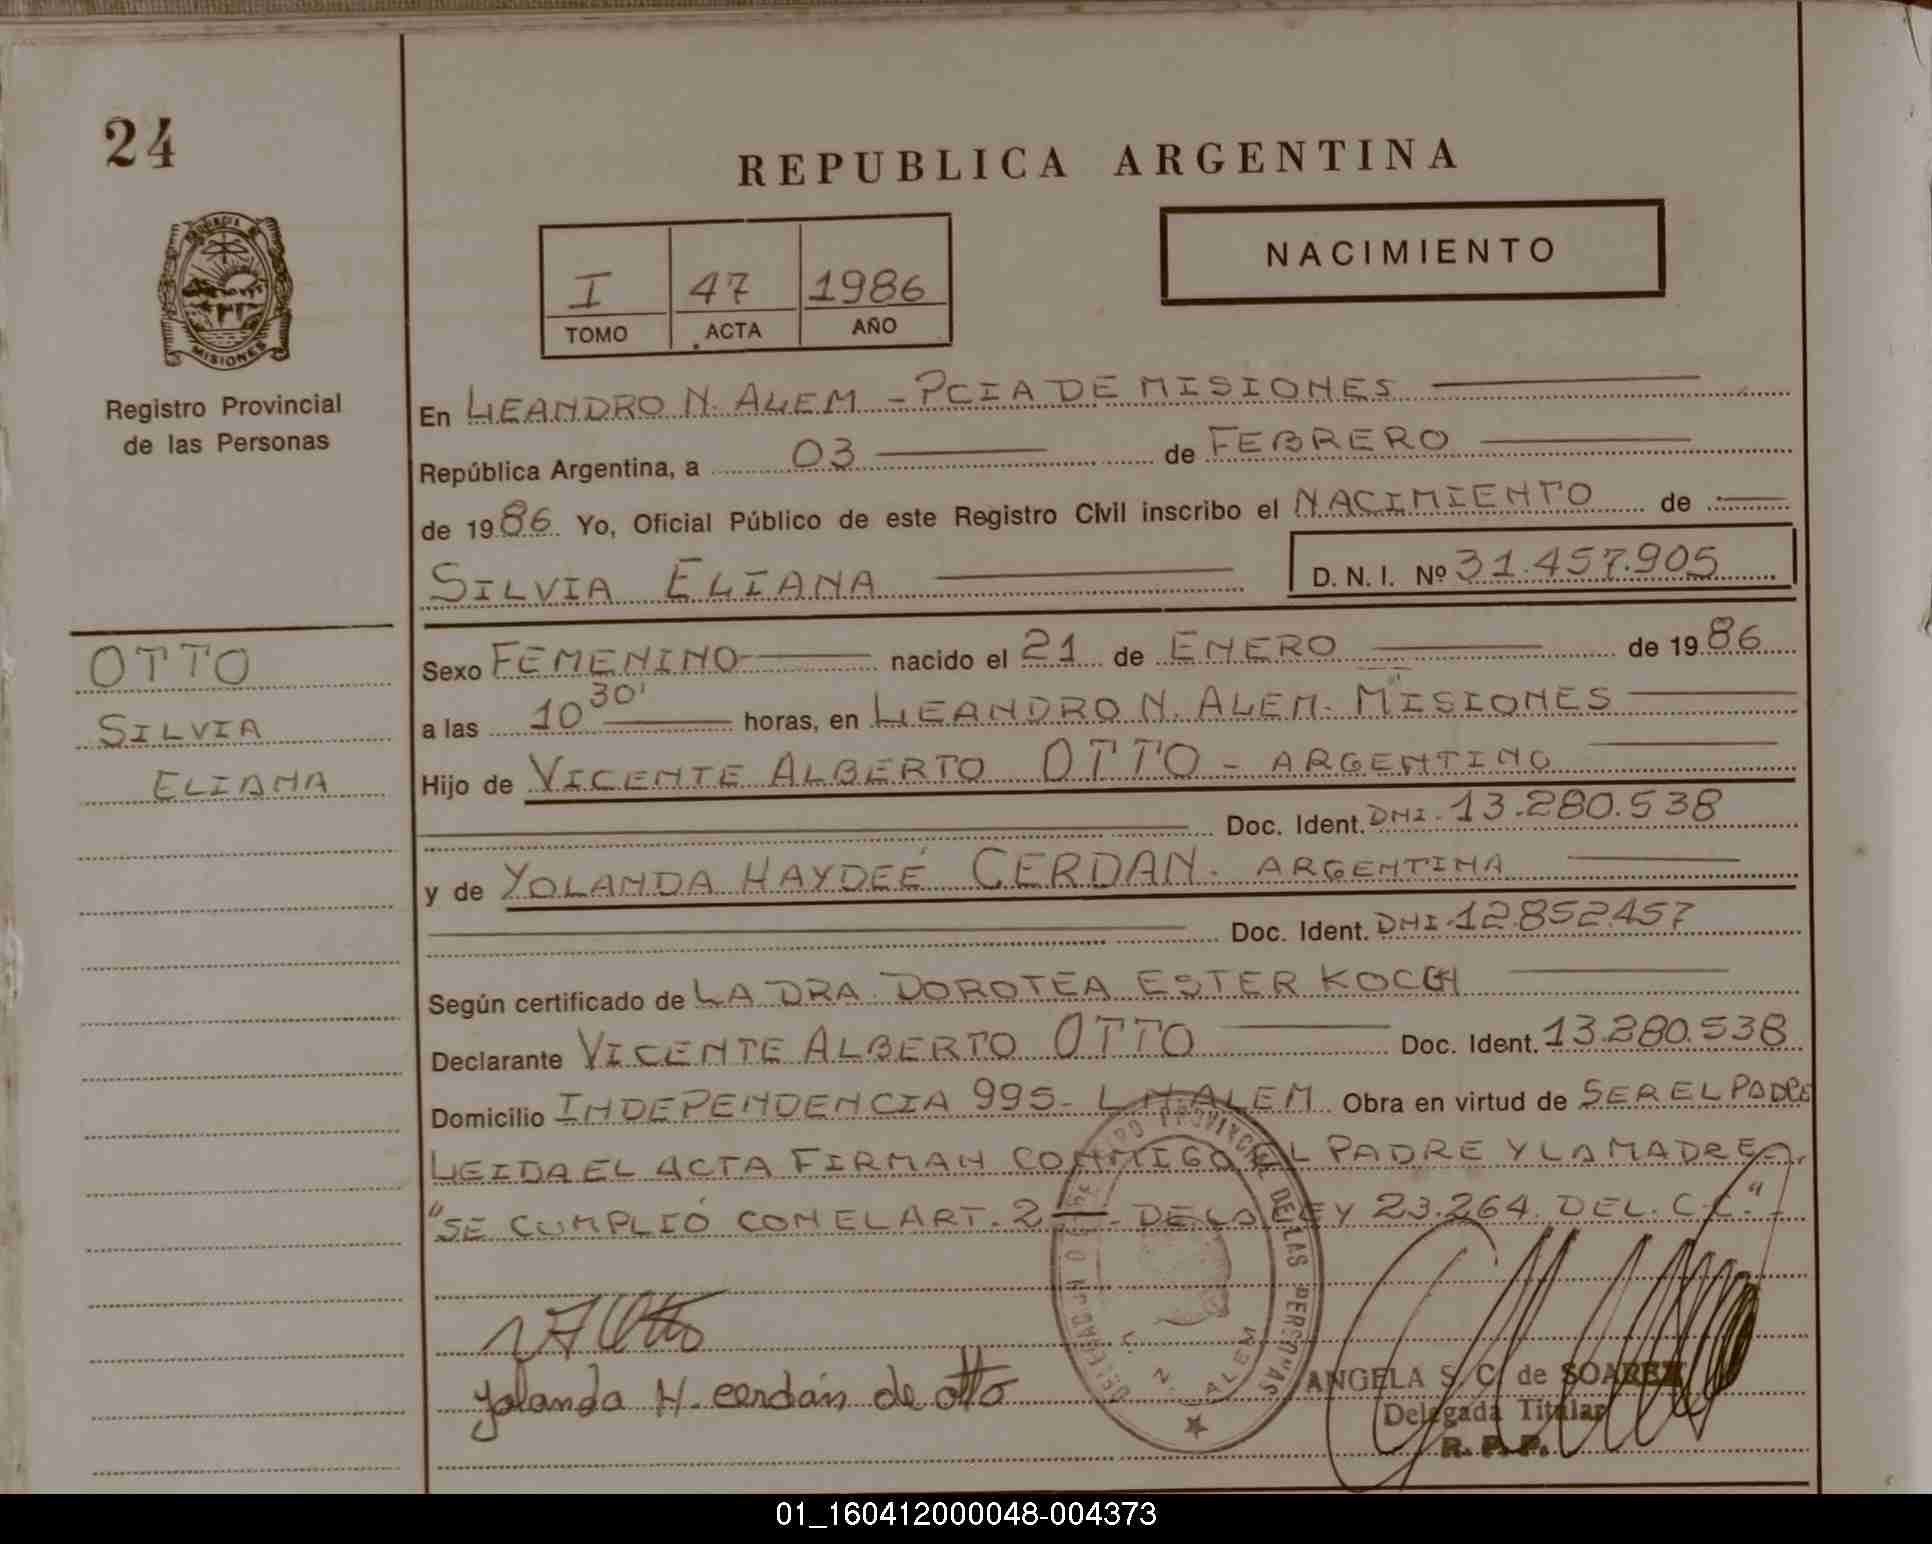 24
PROVINCIA DE
MISIONES
Registro Provincial
de las Personas
OTTO
SILVIA
ELIANA
REPUBLICA ARGENTINA
I 47 1986
TOMO ACTA AÑO
NACIMIENTO
En LEANDRO N. ALEM - PCIA DE MISIONES
República Argentina, a 03 de FEBRERO
de 1986 Yo, Oficial Público de este Registro Civil inscribo el NACIMIENTO de
SILVIA ELIANA D. N. I. Nº 31.457.905
Sexo FEMENINO nacido el 21 de ENERO de 1986
a las 10 30' horas, en LEANDRO N. ALEM. MISIONES
Hijo de VICENTE ALBERTO OTTO - ARGENTINO
Doc. Ident. DNI. 13.280.538
y de YOLANDA HAYDEÉ CERDAN. ARGENTINA
Doc. Ident. DNI.12.852.457
Según certificado de LA DRA. DOROTEA ESTER KOCH
Declarante VICENTE ALBERTO OTTO Doc. Ident. 13.280.538
Domicilio INDEPENDENCIA 995- L N ALEM Obra en virtud de SER EL PADRE
LEIDA EL ACTA FIRMAN CONMIGO EL PADRE Y LA MADRE.
"SE CUMPLIÓ CON EL ART. 2 - DE LA LEY 23.264. DEL. C.C."-
REGISTRO PROVINCIAL DE LAS PERSONAS
DELEGACION
L. N. ALEM
Yolanda H. cerdán de otto
ANGELA S. C. de SOAREZ
Delegada Titular
R. P. P.
01_160412000048-004373